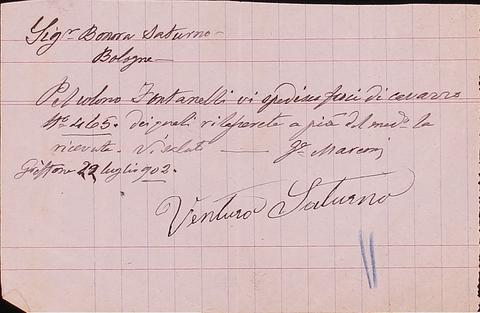 Sigr Bonora Saturno
Bologna
Pel colono Fontanelli vi spedisco fasci di
No 465. dei quali rilascerete a piè del medo la
ricevuta. Vi saluto Marconi
29 luglio 902.
Venturo Saturno